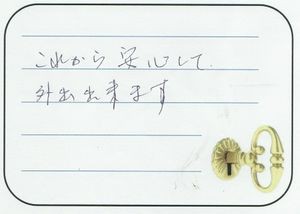 これから安心して、
外出出来ます